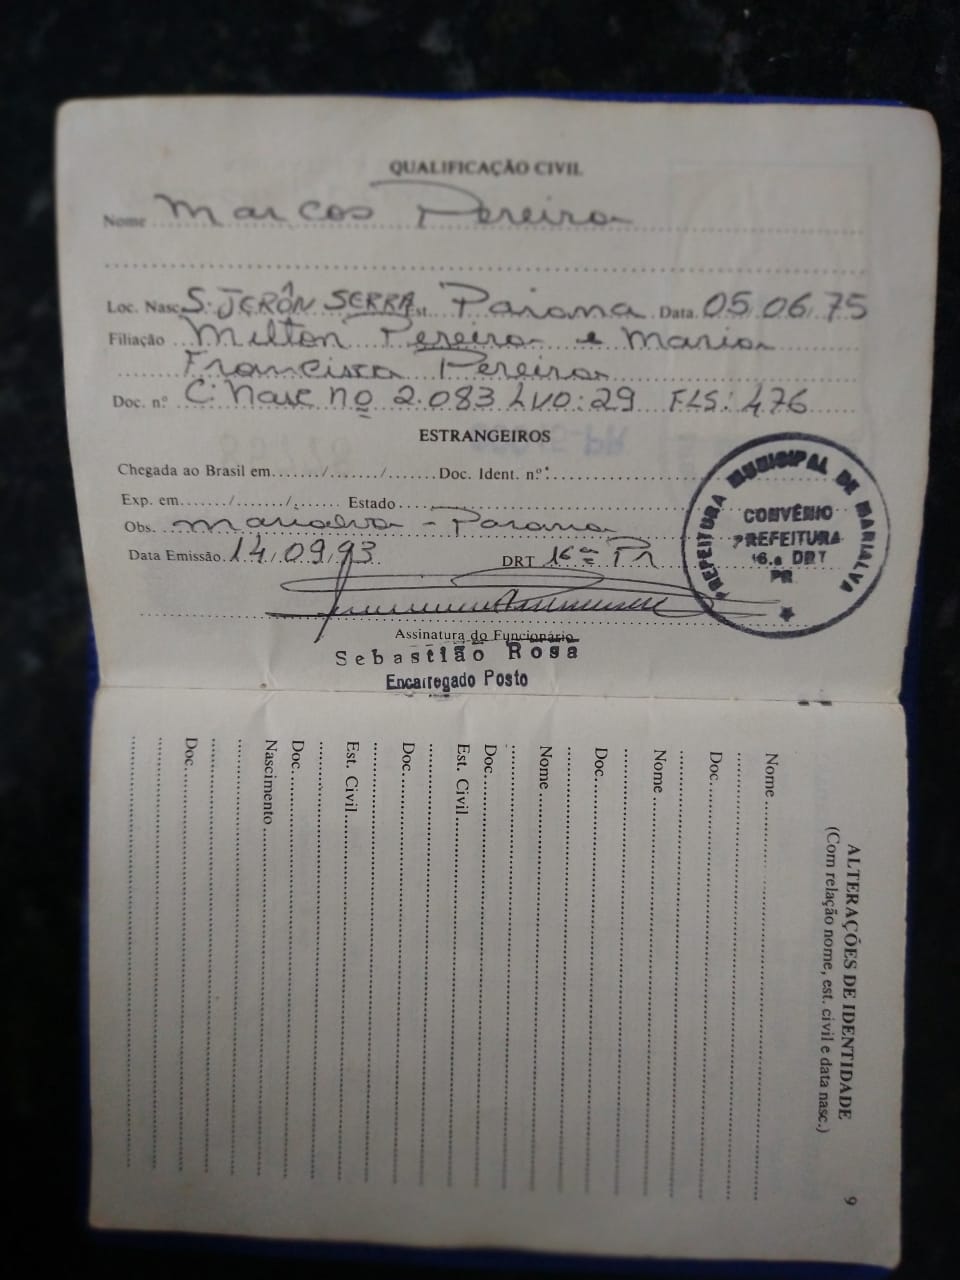 QUALIFICAÇÃO CIVIL
Nome Marcos Pereira
Loc. Nasc. S. JERÔN SERRA Est. Parana Data 05.06.75
Filiação Milton Pereira e Maria
Francisca Pereira
Doc. n.º C. Nasc nº 2.083 LVO: 29 FLS: 476
ESTRANGEIROS
Chegada ao Brasil em ....../....../...... Doc. Ident. n.º
Exp. em ....../....../...... Estado
Obs. Marialva - Parana
Data Emissão 14.09.93 DRT 16ª Pr
PREFEITURA MUNICIPAL DE MARIALVA
CONVÊNIO
PREFEITURA
16.a DRT
PR
Assinatura do Funcionário
Sebastião Rosa
Encarregado Posto
ALTERAÇÕES DE IDENTIDADE
(Com relação nome, est. civil e data nasc.)
Nome
Doc.
Nome
Doc.
Nome
Doc.
Est. Civil
Doc.
Est. Civil
Doc.
Nascimento
Doc.
9